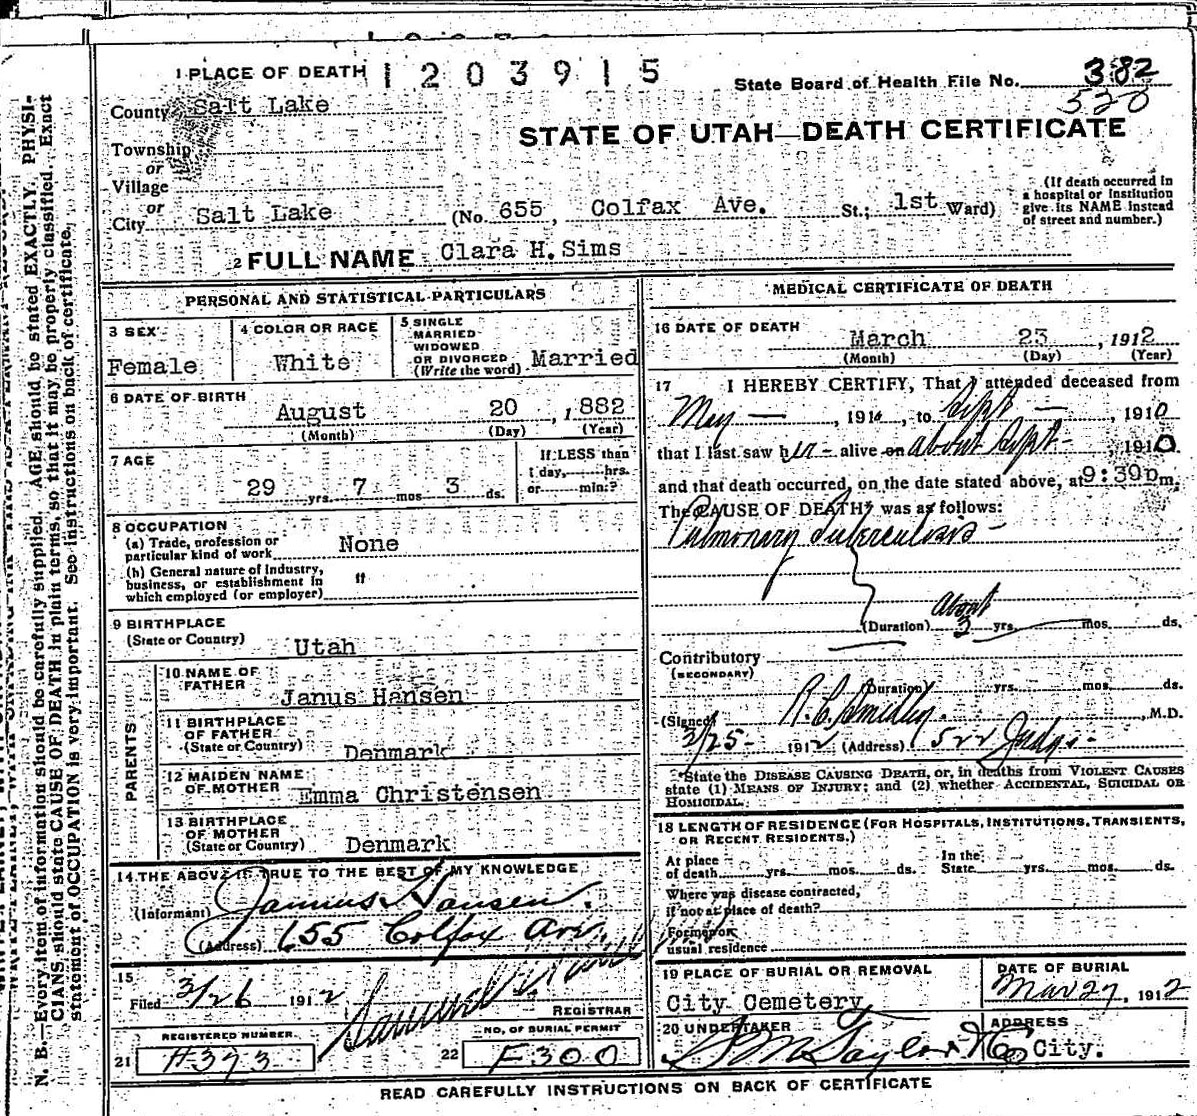 1 PLACE OF DEATH 1203915
State Board of Health File No. 382
520
County Salt Lake
STATE OF UTAH—DEATH CERTIFICATE
Township
or
Village
or
City Salt Lake (No. 655, Colfax Ave. St.; 1st Ward)
(If death occurred in a hospital or institution give its NAME instead of street and number.)
2 FULL NAME Clara H. Sims
PERSONAL AND STATISTICAL PARTICULARS
3 SEX Female
4 COLOR OR RACE White
5 SINGLE MARRIED WIDOWED OR DIVORCED (Write the word) Married
6 DATE OF BIRTH
August 20, 1882
(Month) (Day) (Year)
7 AGE
29 yrs. 7 mos. 3 ds.
If LESS than
1 day, hrs.
or min.?
8 OCCUPATION
(a) Trade, profession or
particular kind of work None
(b) General nature of Industry,
business, or establishment in
which employed (or employer) "
9 BIRTHPLACE
(State or Country) Utah
PARENTS
10 NAME OF
FATHER Janus Hansen
11 BIRTHPLACE
OF FATHER
(State or Country) Denmark
12 MAIDEN NAME
OF MOTHER Emma Christensen
13 BIRTHPLACE
OF MOTHER
(State or Country) Denmark
14 THE ABOVE IS TRUE TO THE BEST OF MY KNOWLEDGE
(Informant) Jannus Hansen.
(Address) 655 Colfax Ave.
15
Filed 3/26 1912
REGISTRAR
REGISTERED NUMBER
21 #373
NO. OF BURIAL PERMIT
22 F300
MEDICAL CERTIFICATE OF DEATH
16 DATE OF DEATH
March 23, 1912
(Month) (Day) (Year)
17 I HEREBY CERTIFY, That I attended deceased from
May — , 1910, to Sept — , 1910
that I last saw her alive on about Sept — 1910
and that death occurred, on the date stated above, at 9:39 pm.
The CAUSE OF DEATH* was as follows:
Pulmonary Tuberculosis
About
(Duration) 3 yrs. mos. ds.
Contributory
(SECONDARY)
(Duration) yrs. mos. ds.
(Signed) R. C. Smedley, M.D.
3/25 - 1912 (Address) 522 Judge -
*State the DISEASE CAUSING DEATH, or, in deaths from VIOLENT CAUSES
state (1) MEANS OF INJURY; and (2) whether ACCIDENTAL, SUICIDAL OR
HOMICIDAL.
18 LENGTH OF RESIDENCE (FOR HOSPITALS, INSTITUTIONS, TRANSIENTS,
OR RECENT RESIDENTS.)
At place
of death yrs. mos. ds.
In the
State yrs. mos. ds.
Where was disease contracted,
if not at place of death?
Former or
usual residence
19 PLACE OF BURIAL OR REMOVAL
City Cemetery
DATE OF BURIAL
Mar 27, 1912
20 UNDERTAKER
S M Taylor & Co
ADDRESS
City.
READ CAREFULLY INSTRUCTIONS ON BACK OF CERTIFICATE
N. B.—Every item of information should be carefully supplied. AGE should be stated EXACTLY. PHYSI-
CIANS should state CAUSE OF DEATH in plain terms, so that it may be properly classified. Exact
statement of OCCUPATION is very important. See instructions on back of certificate.